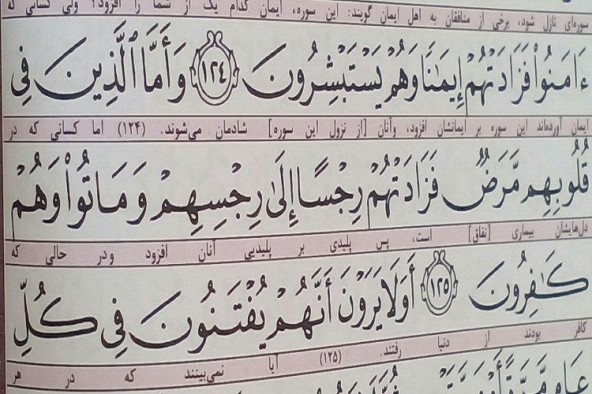 سوره‌ای نازل شود، برخی از منافقان به اهل ایمان گویند: این سوره، ایمان کدام یک از شما را افزود؟ ولی کسانی که
ءَامَنُواْ فَزَادَتْهُمْ إِيمَٰنًا وَهُمْ يَسْتَبْشِرُونَ ١٢٤ وَأَمَّا ٱلَّذِينَ فِي
ایمان آورده‌اند این سوره بر ایمانشان افزود، و آنان [از نزول این سوره] شادمان می‌شوند. (۱۲۴) اما کسانی که در
قُلُوبِهِم مَّرَضٌ فَزَادَتْهُمْ رِجْسًا إِلَىٰ رِجْسِهِمْ وَمَاتُواْ وَهُمْ
دل‌هایشان بیماری [نفاق] است، پس پلیدی بر پلیدیی آنان افزود و در حالی که
كَٰفِرُونَ ١٢٥ أَوَلَا يَرَوْنَ أَنَّهُمْ يُفْتَنُونَ فِي كُلِّ
کافر بودند از دنیا رفتند. (۱۲۵) آیا نمی‌بینند که در هر
عَامٍ مَّرَّةً أَوْ